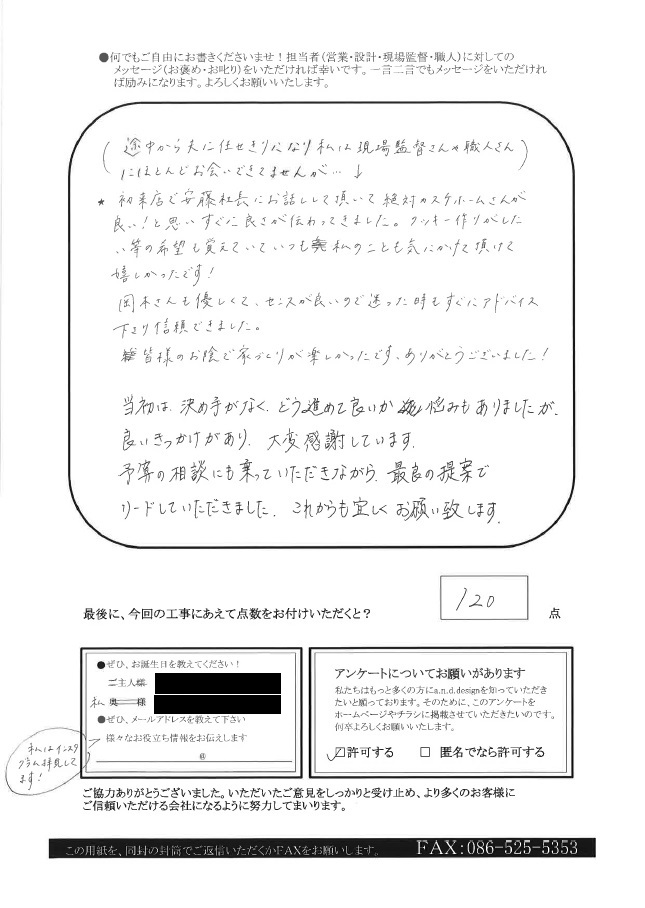 ●何でもご自由にお書きくださいませ！担当者（営業・設計・現場監督・職人）に対しての
メッセージ（お褒め・お叱り）をいただければ幸いです。一言二言でもメッセージをいただけれ
ば励みになります。よろしくお願いいたします。
（途中から夫に任せきりになり私は現場監督さんや職人さん
にほとんどお会いできてませんが…↓）
★ 初来店で安藤社長にお話しして頂いて絶対カスケホームさんが
良い！と思いすぐに良さが伝わってきました。クッキー作りがした
い等の希望も覚えていていつも私のことも気にかけて頂けて
嬉しかったです！
岡本さんも優しくて、センスが良いので迷った時もすぐにアドバイス
下さり信頼できました。
皆様のお陰で家づくりが楽しかったです、ありがとうございました！
当初は、決め手がなく、どう進めて良いか 悩みもありましたが、
良いきっかけがあり、大変感謝しています。
予算の相談にも乗っていただきながら、最良の提案で
リードしていただきました。これからも宜しくお願い致します。
最後に、今回の工事にあえて点数をお付けいただくと？ 120 点
●ぜひ、お誕生日を教えてください！
ご主人様
私 奥様
●ぜひ、メールアドレスを教えて下さい
様々なお役立ち情報をお伝えします
＠
私はインスタ
グラム拝見して
ます！
アンケートについてお願いがあります
私たちはもっと多くの方にa.n.d.designを知っていただき
たいと願っております。そのために、このアンケートを
ホームページやチラシに掲載させていただきたいのです。
何卒よろしくお願いいたします。
☑許可する □ 匿名でなら許可する
ご協力ありがとうございました。いただいたご意見をしっかりと受け止め、より多くのお客様に
ご信頼いただける会社になるように努力してまいります。
この用紙を、同封の封筒でご返信いただくかFAXをお願いします。 FAX：086-525-5353